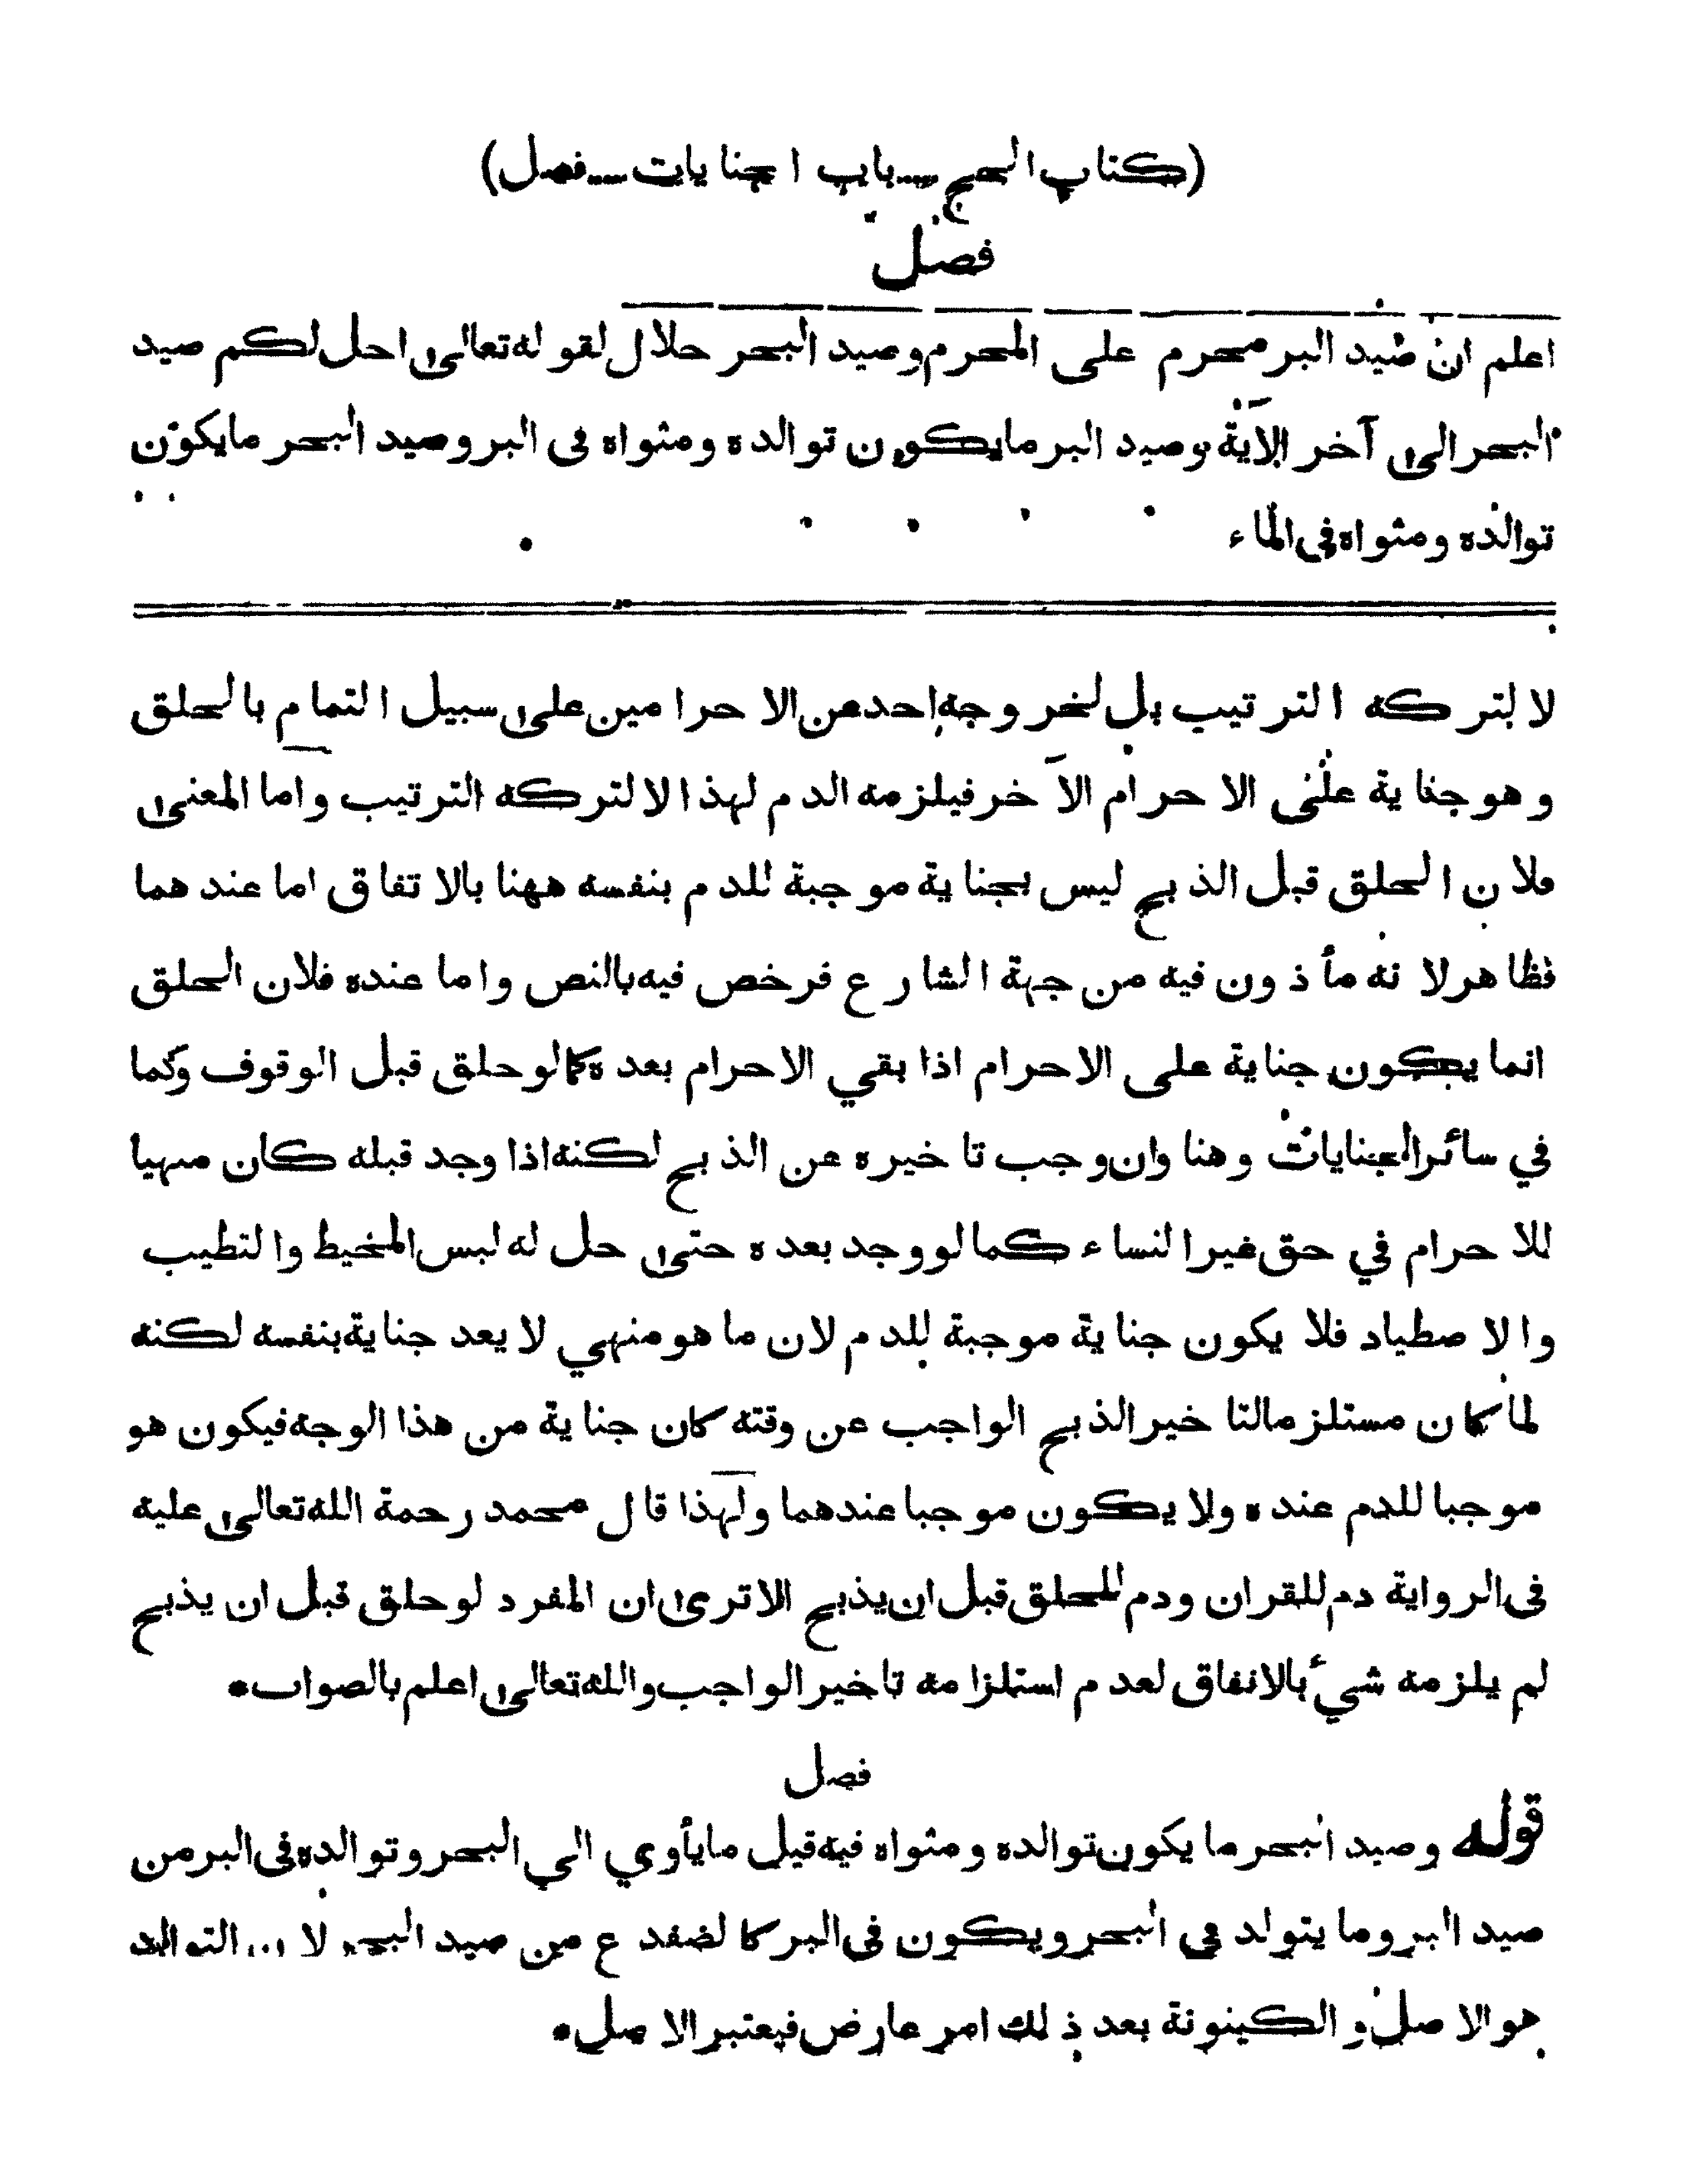 (كتاب الحج ــ باب الجنايات ــ فصل)
فصل
اعلم ان صيد البر محرم على المحرم وصيد البحر حلال لقوله تعالى احل لكم صيد
البحر الى آخر الآية وصيد البر ما يكون توالده ومثواه فى البر وصيد البحر ما يكون
توالده ومثواه فى الماء
لا لتركه الترتيب بل لخروجه احد عن الاحرامين على سبيل التمام بالحلق
وهو جناية على الاحرام الآخر فيلزمه الدم لهذا لا لتركه الترتيب واما المعنى
فلان الحلق قبل الذبح ليس بجناية موجبة للدم بنفسه ههنا بالاتفاق اما عندهما
فظاهر لانه مأذون فيه من جهة الشارع فرخص فيه بالنص واما عنده فلان الحلق
انما يكون جناية على الاحرام اذا بقي الاحرام بعده كما لو حلق قبل الوقوف وكما
في سائر الجنايات وهنا وان وجب تاخيره عن الذبح لكنه اذا وجد قبله كان منهيا
للاحرام في حق غير النساء كما لو وجد بعده حتى حل له لبس المخيط والتطيب
والاصطياد فلا يكون جناية موجبة للدم لان ما هو منهي لا يعد جناية بنفسه لكنه
لما كان مستلزما لتاخير الذبح الواجب عن وقته كان جناية من هذا الوجه فيكون هو
موجبا للدم عنده ولا يكون موجبا عندهما ولهذا قال محمد رحمة الله تعالى عليه
فى الرواية دم للقران ودم للحلق قبل ان يذبح الا ترى ان المفرد لو حلق قبل ان يذبح
لم يلزمه شيء بالاتفاق لعدم استلزامه تاخير الواجب والله تعالى اعلم بالصواب •
فصل
قوله وصيد البحر ما يكون توالده ومثواه فيه قيل ما يأوي الى البحر وتوالده فى البر من
صيد البر وما يتولد في البحر ويكون فى البر كالضفدع من صيد البحر لان التوالد
هو الاصل والكينونة بعد ذلك امر عارض فيعتبر الاصل •